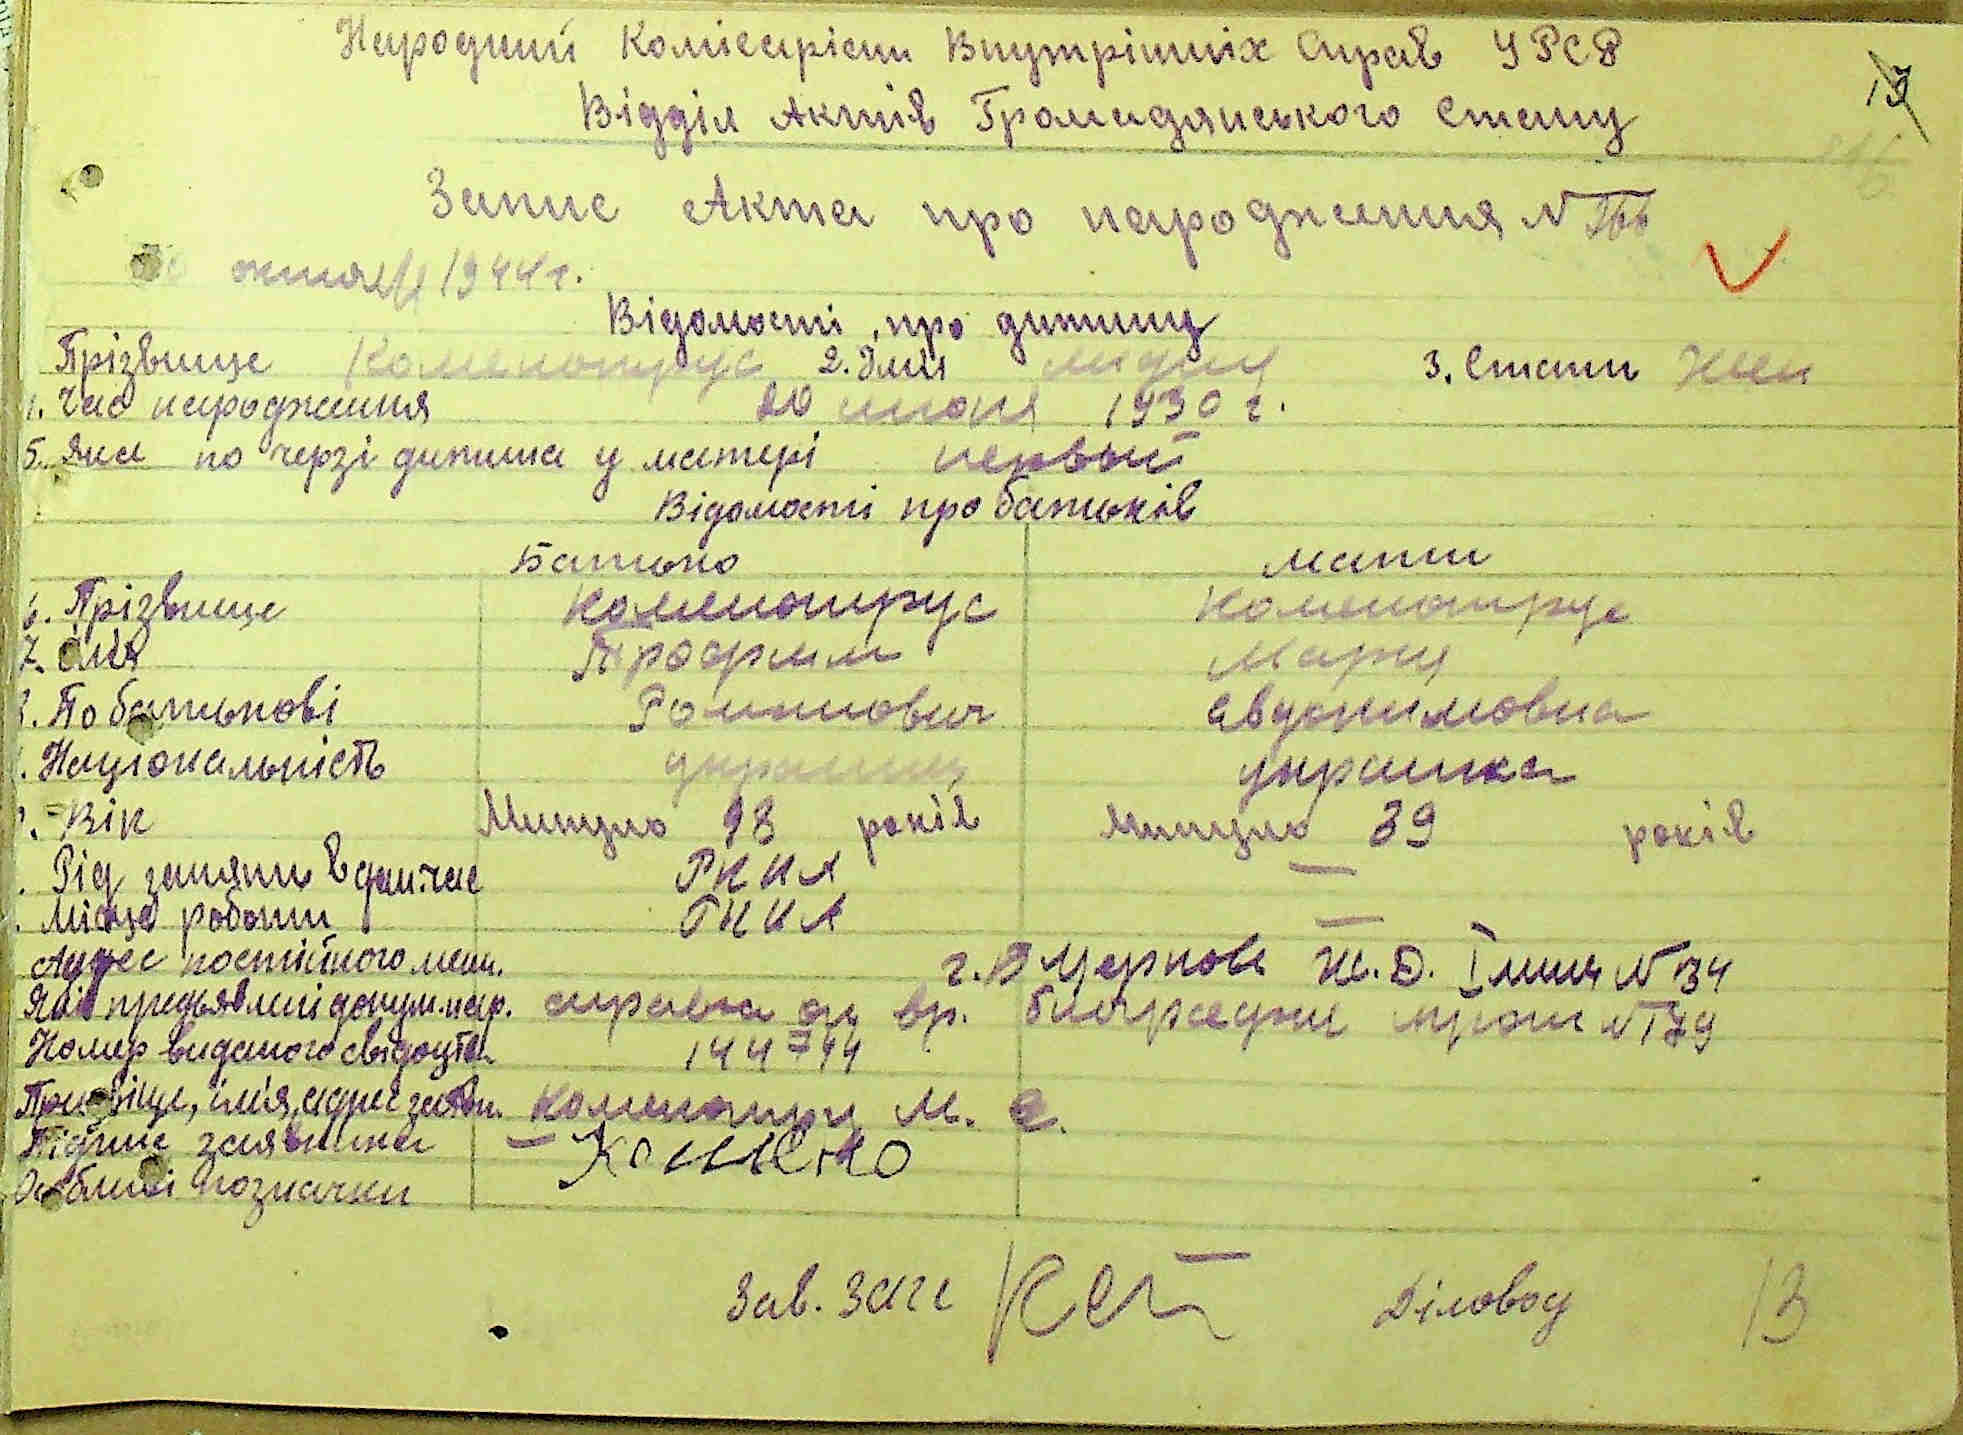 Народний Комісаріат Внутрішніх Справ УРСР
Відділ Актів Громадянського Стану
Запис Акта про народження №
октября 1944 г.
Відомості про дитину
Прізвище Коменотрус 2. Імя Лидия 3. Стать Жен
Час народження 20 июня 1930 г.
5. Яка по черзі дитина у матері первый
Відомості про батьків
Батько мати
6. Прізвище Коменотрус Коменотрус
7. імя Трофим Мария
По батькові Евдокимовна
Національність украинец украинка
Вік Минуло 48 років минуло 39 років
Рід занять в дан. час РККА —
Місце роботи РККА —
Адрес постійного меш. г. В Уерновь Ж.Д. I линия № 34
Які предьявлені докум. нар. справка
Номер виданого свідоцтва 144744
Прізвище, імя, адрес заявн. М. Е.
Підпис заявника —
Особливі позначки
Зав. Загс Діловод
13